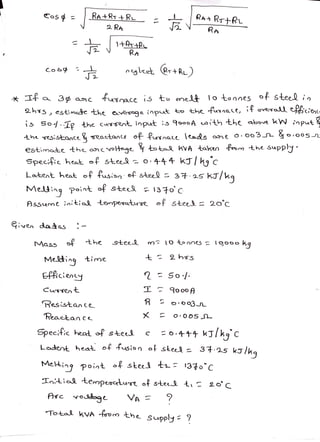 Cosφ = √RA+RT+RL / 2RA = 1/√2 √RA+RT+RL / RA
= 1/√2 √1+RT+RL / RA
Cosφ = 1/√2 neglect (RT+RL)
* If a 3φ arc furnace is to melt 10 tonnes of steel in
2hrs, estimate the average input to the furnace, if overall efficien
is 50%. If the current input is 9000A with the above kW input &
the resistance & reactance of furnace leads are 0.003Ω & 0.005Ω
estimate the arc voltage & total KVA taken from the supply.
Specific heat of steel = 0.444 KJ/kg°C
Latent heat of fusion of steel = 37.25 KJ/kg
Melting point of steel = 1370°C
Assume initial temperature of steel = 20°C
Given datas :-
Mass of the steel m = 10 tonnes = 10,000 kg
Melting time t = 2 hrs
Efficiency η = 50%
Current I = 9000A
Resistance R = 0.003Ω
Reactance X = 0.005Ω
Specific heat of steel c = 0.444 kJ/kg°C
Latent heat of fusion of steel = 37.25 kJ/kg
Melting point of steel t2 = 1370°C
Initial temperature of steel t1 = 20°C
Arc voltage VA = ?
Total KVA from the supply = ?